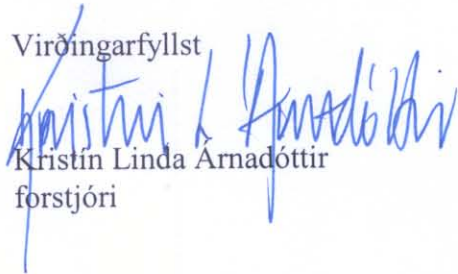 Virðingarfyllst
Kristin L Árnadóttir
Kristín Linda Árnadóttir
forstjóri